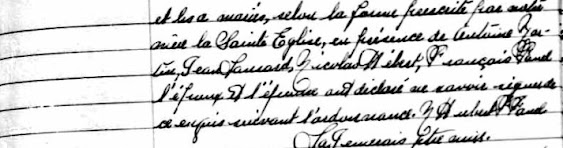 et les a mariés, selon la forme prescrite par notre
mère la Sainte Eglise, en présence de Antoine
Jean Nicolas Hébert, François
l'époux et l'épouse ont déclaré ne savoir signer de
ce enquis suivant l'ordonnance. N Hubert
Ptre miss.